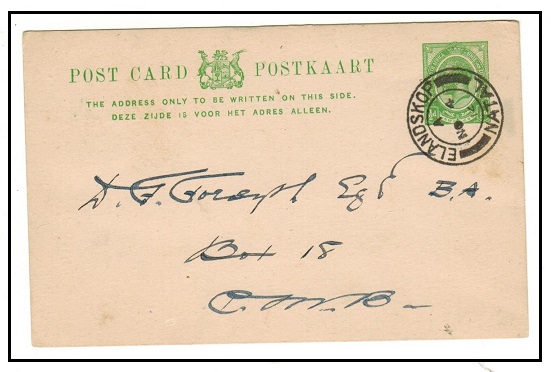 POST CARD POSTKAART
THE ADDRESS ONLY TO BE WRITTEN ON THIS SIDE.
DEZE ZIJDE IS VOOR HET ADRES ALLEEN.
ELANDSKOP NATAL
D. F. Forsyth Esq B.A.
Box 18
C.M.B.